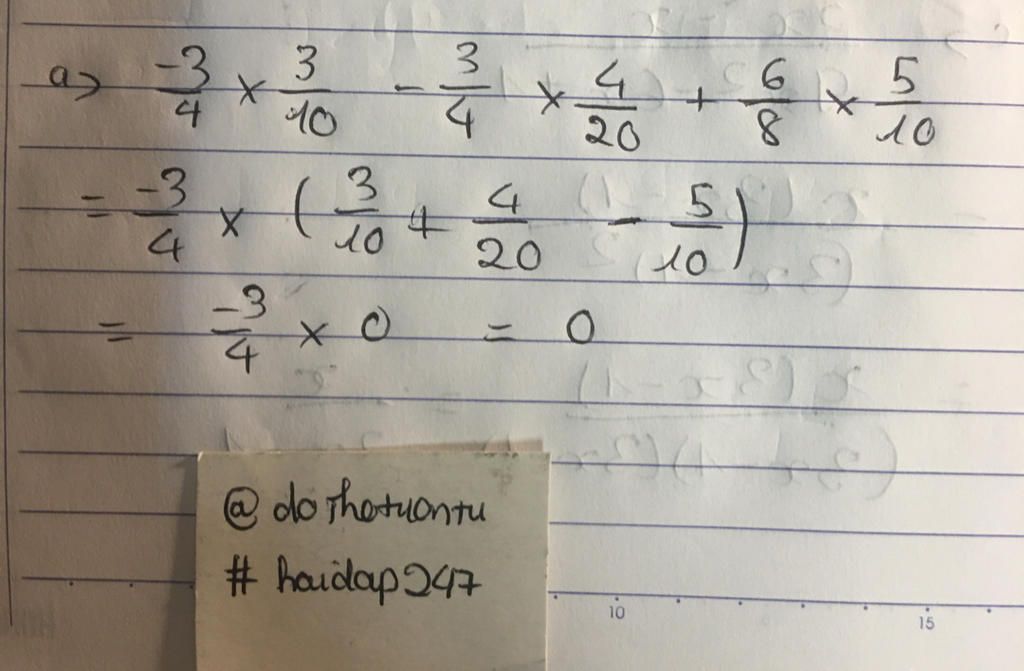 a) -3/4 × 3/10 - 3/4 × 4/20 + 6/8 × 5/10
= -3/4 × (3/10 + 4/20 - 5/10)
= -3/4 × 0 = 0
@dothetuantu
# hoidap247
10 15